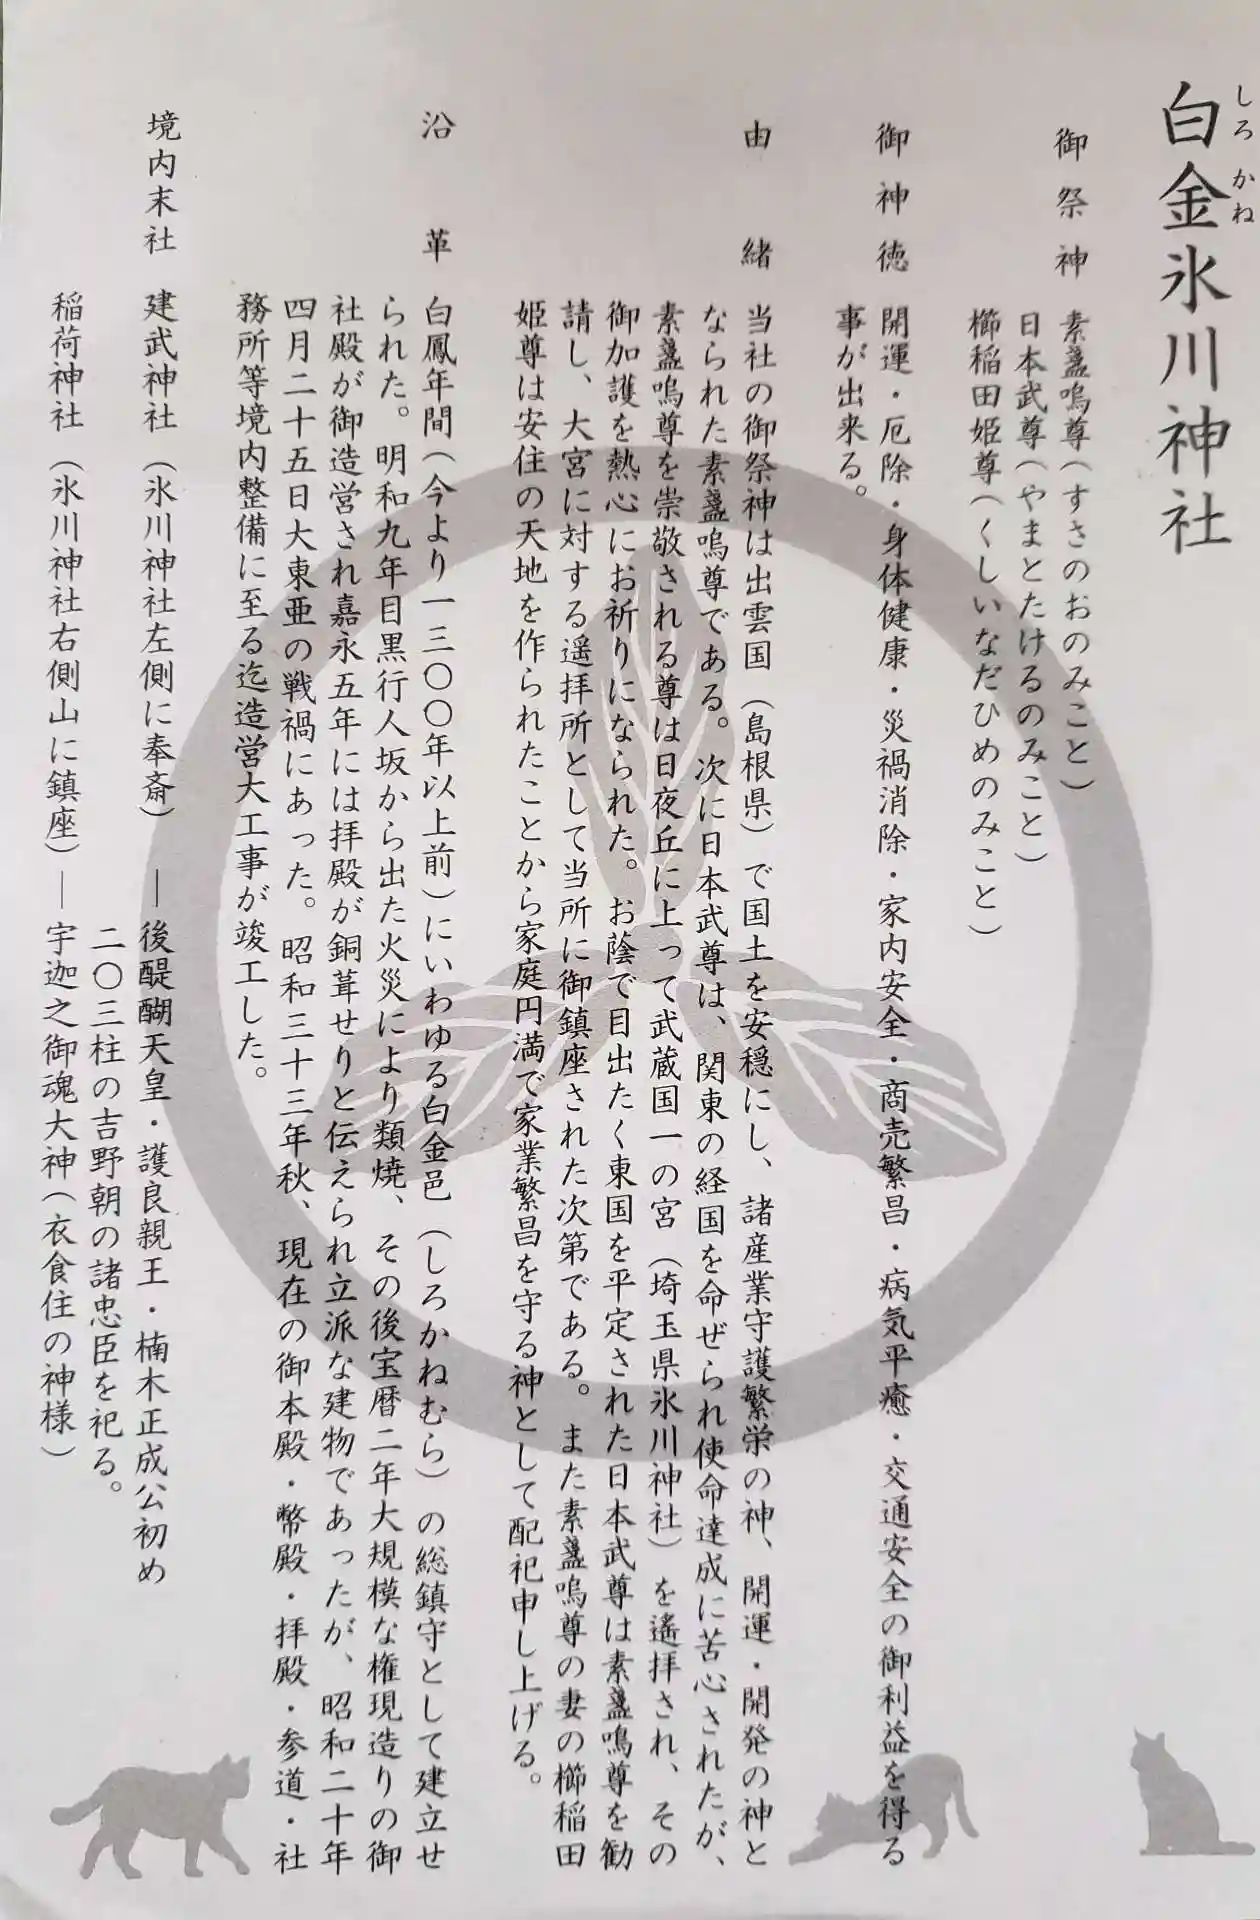 白金氷川神社
しろかね
御祭神
素盞嗚尊(すさのおのみこと)
日本武尊(やまとたけるのみこと)
櫛稲田姫尊(くしいなだひめのみこと)
御神徳
開運・厄除・身体健康・災禍消除・家内安全・商売繁昌・病気平癒・交通安全の御利益を得る
事が出来る。
由緒
当社の御祭神は出雲国(島根県)で国土を安穏にし、諸産業守護繁栄の神、開運・開発の神と
なられた素盞嗚尊である。次に日本武尊は、関東の経国を命ぜられ使命達成に苦心されたが、
素盞嗚尊を崇敬される尊は日夜丘に上って武蔵国一の宮(埼玉県氷川神社)を遙拝され、その
御加護を熱心にお祈りになられた。お蔭で目出たく東国を平定された日本武尊は素盞嗚尊を勧
請し、大宮に対する遥拝所として当所に御鎮座された次第である。また素盞嗚尊の妻の櫛稲田
姫尊は安住の天地を作られたことから家庭円満で家業繁昌を守る神として配祀申し上げる。
沿革
白鳳年間(今より一三〇〇年以上前)にいわゆる白金邑(しろかねむら)の総鎮守として建立せ
られた。明和九年目黒行人坂から出た火災により類焼、その後宝暦二年大規模な権現造りの御
社殿が御造営され嘉永五年には拝殿が銅葺せりと伝えられ立派な建物であったが、昭和二十年
四月二十五日大東亜の戦禍にあった。昭和三十三年秋、現在の御本殿・幣殿・拝殿・参道・社
務所等境内整備に至る迄造営大工事が竣工した。
境内末社
建武神社(氷川神社左側に奉斎)―後醍醐天皇・護良親王・楠木正成公初め
二〇三柱の吉野朝の諸忠臣を祀る。
稲荷神社(氷川神社右側山に鎮座)―宇迦之御魂大神(衣食住の神様)